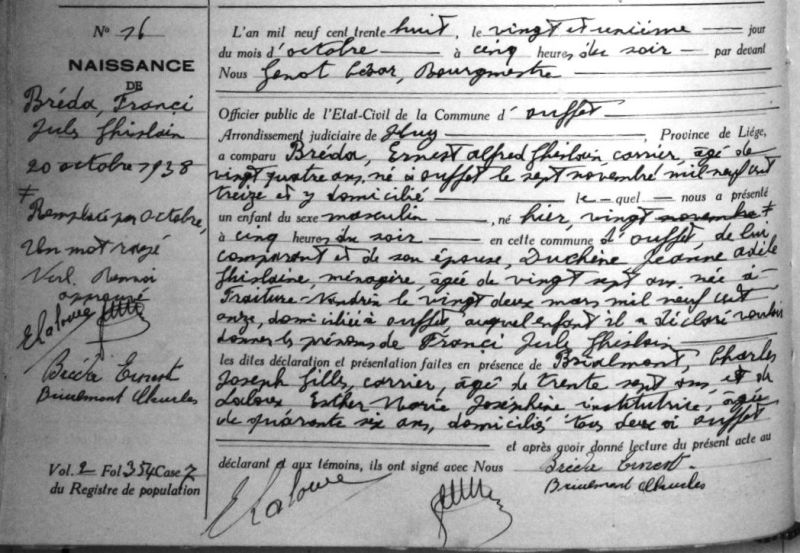 N° 16
NAISSANCE
DE
Bréda, Franci
Jules Ghislain
20 octobre 1938
≠
Remplacé par octobre,
Un mot rayé
Verl. Renvoi
approuvé
E Laloux
Bréda Ernest
Brialmont Charles
Vol. 2 Fol 354 Case 7
du Registre de population
L'an mil neuf cent trente huit, le vingt et unième jour
du mois d'octobre à cinq heures du soir par devant
Nous Genot César, Bourgmestre
Officier public de l'Etat-Civil de la Commune d'ouffet
Arrondissement judiciaire de Huy, Province de Liége,
a comparu Bréda, Ernest Alfred Ghislain carrier, âgé de
vingt quatre ans, né à ouffet le sept novembre mil neuf cent
treize et y domicilié lequel nous a présenté
un enfant du sexe masculin, né hier, vingt novembre ≠
à cinq heures du soir en cette commune d'ouffet, de lui
comparant et de son épouse, Duchêne Jeanne Adèle
Ghislaine, ménagère, âgée de vingt sept ans, née à
Fraiture-Nandrin le vingt deux mars mil neuf cent
onze, domiciliée à ouffet, auquel enfant il a déclaré vouloir
donner les prénoms de Franci Jules Ghislain
les dites déclaration et présentation faites en présence de Brialmont, Charles
Joseph Gilles, carrier, âgé de trente sept ans et de
Laloux Esther Marie Joséphine institutrice, âgée
de quarante six ans, domiciliés tous deux à ouffet
et après avoir donné lecture du présent acte au
déclarant et aux témoins, ils ont signé avec Nous Bréda Ernest
E Laloux Brialmont Charles